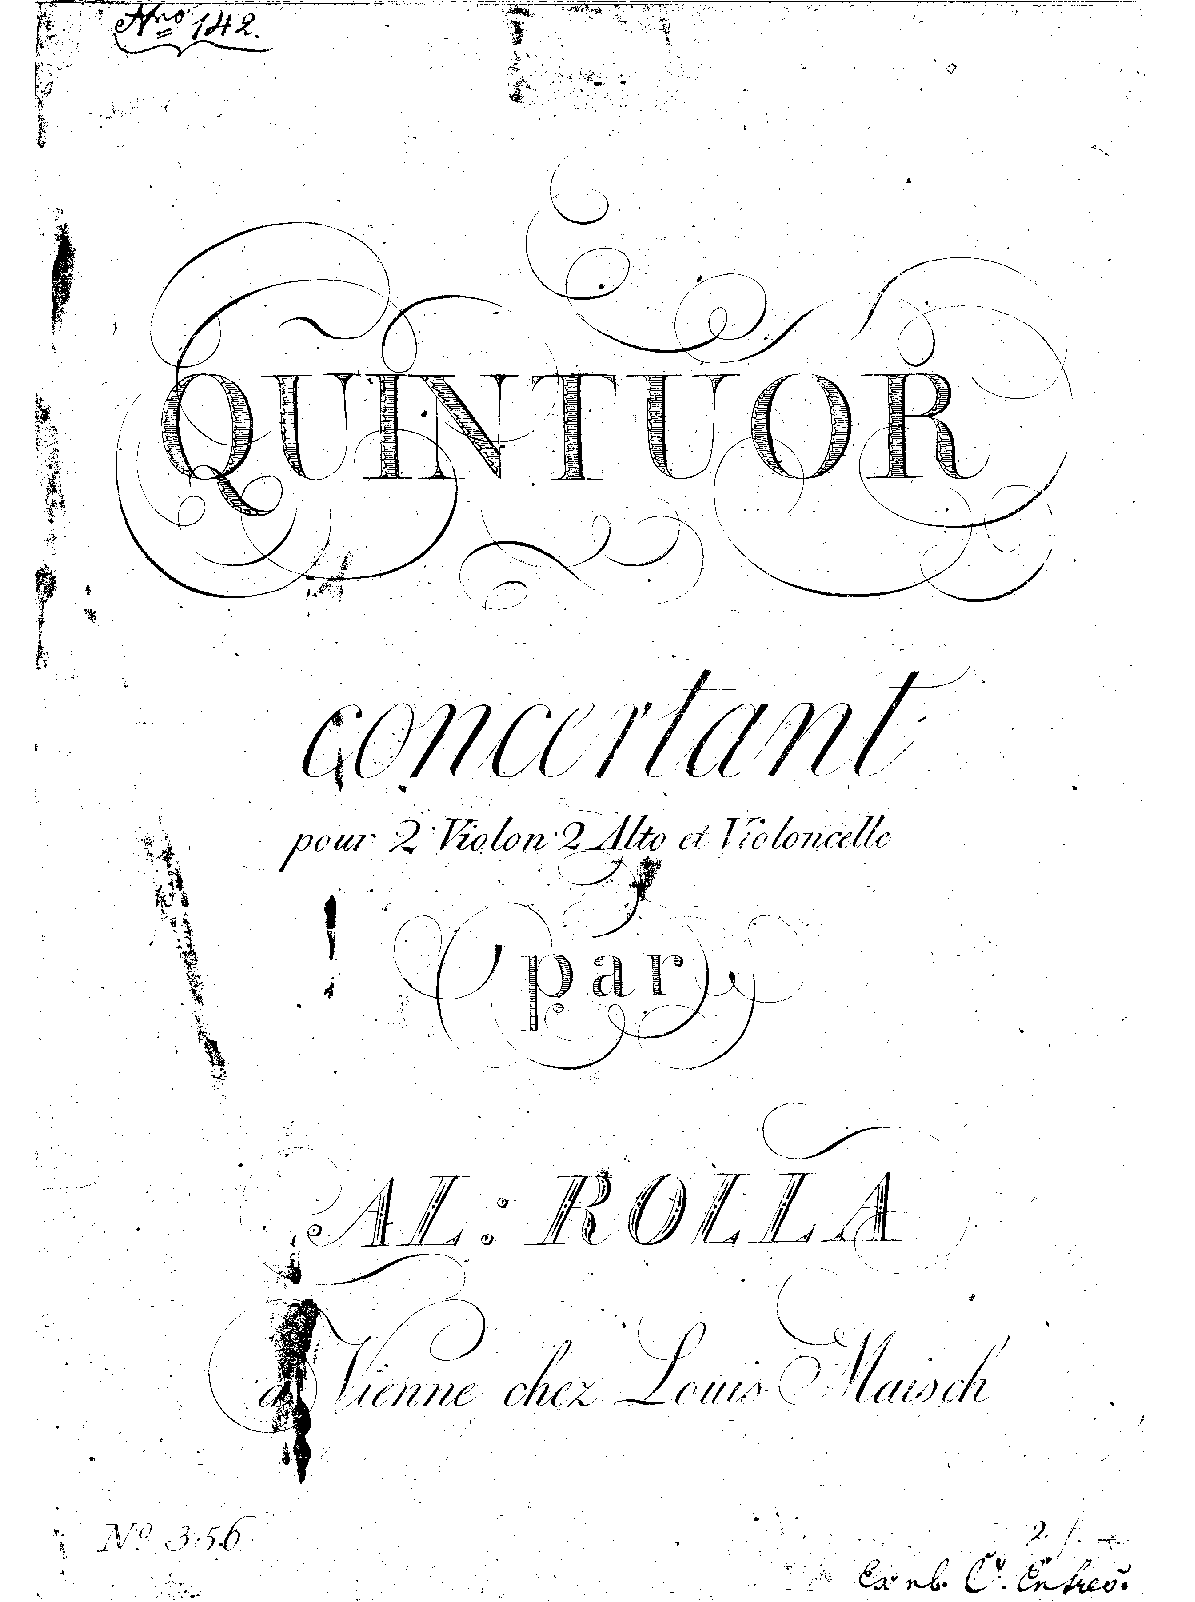 Nro 142.
QUINTUOR
concertant
pour 2 Violon 2 Alto et Violoncelle
par
AL: ROLLA
à Vienne chez Louis Maisch
No 356
2 f.
Ex nb. C.